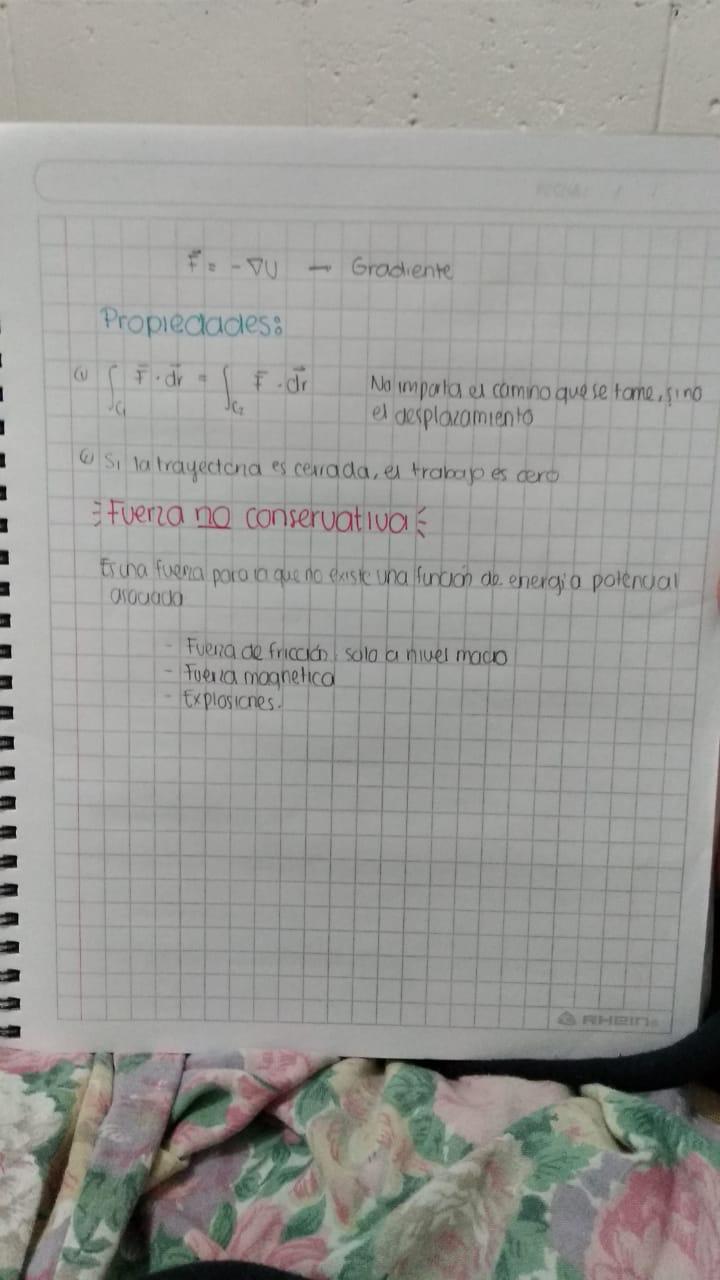 FECHA: / /
F⃗ = - ∇U — Gradiente
Propiedades:
① ∫C₁ F⃗ · dr⃗ = ∫C₂ F⃗ · dr⃗ No importa el camino que se tome, sino
el desplazamiento
② Si la trayectoria es cerrada, el trabajo es cero
Fuerza no conservativa
Es una fuerza para la que no existe una función de energía potencial
asociada
- Fuerza de fricción: solo a nivel macro
- Fuerza magnetica
- Explosiones.
RHEIN